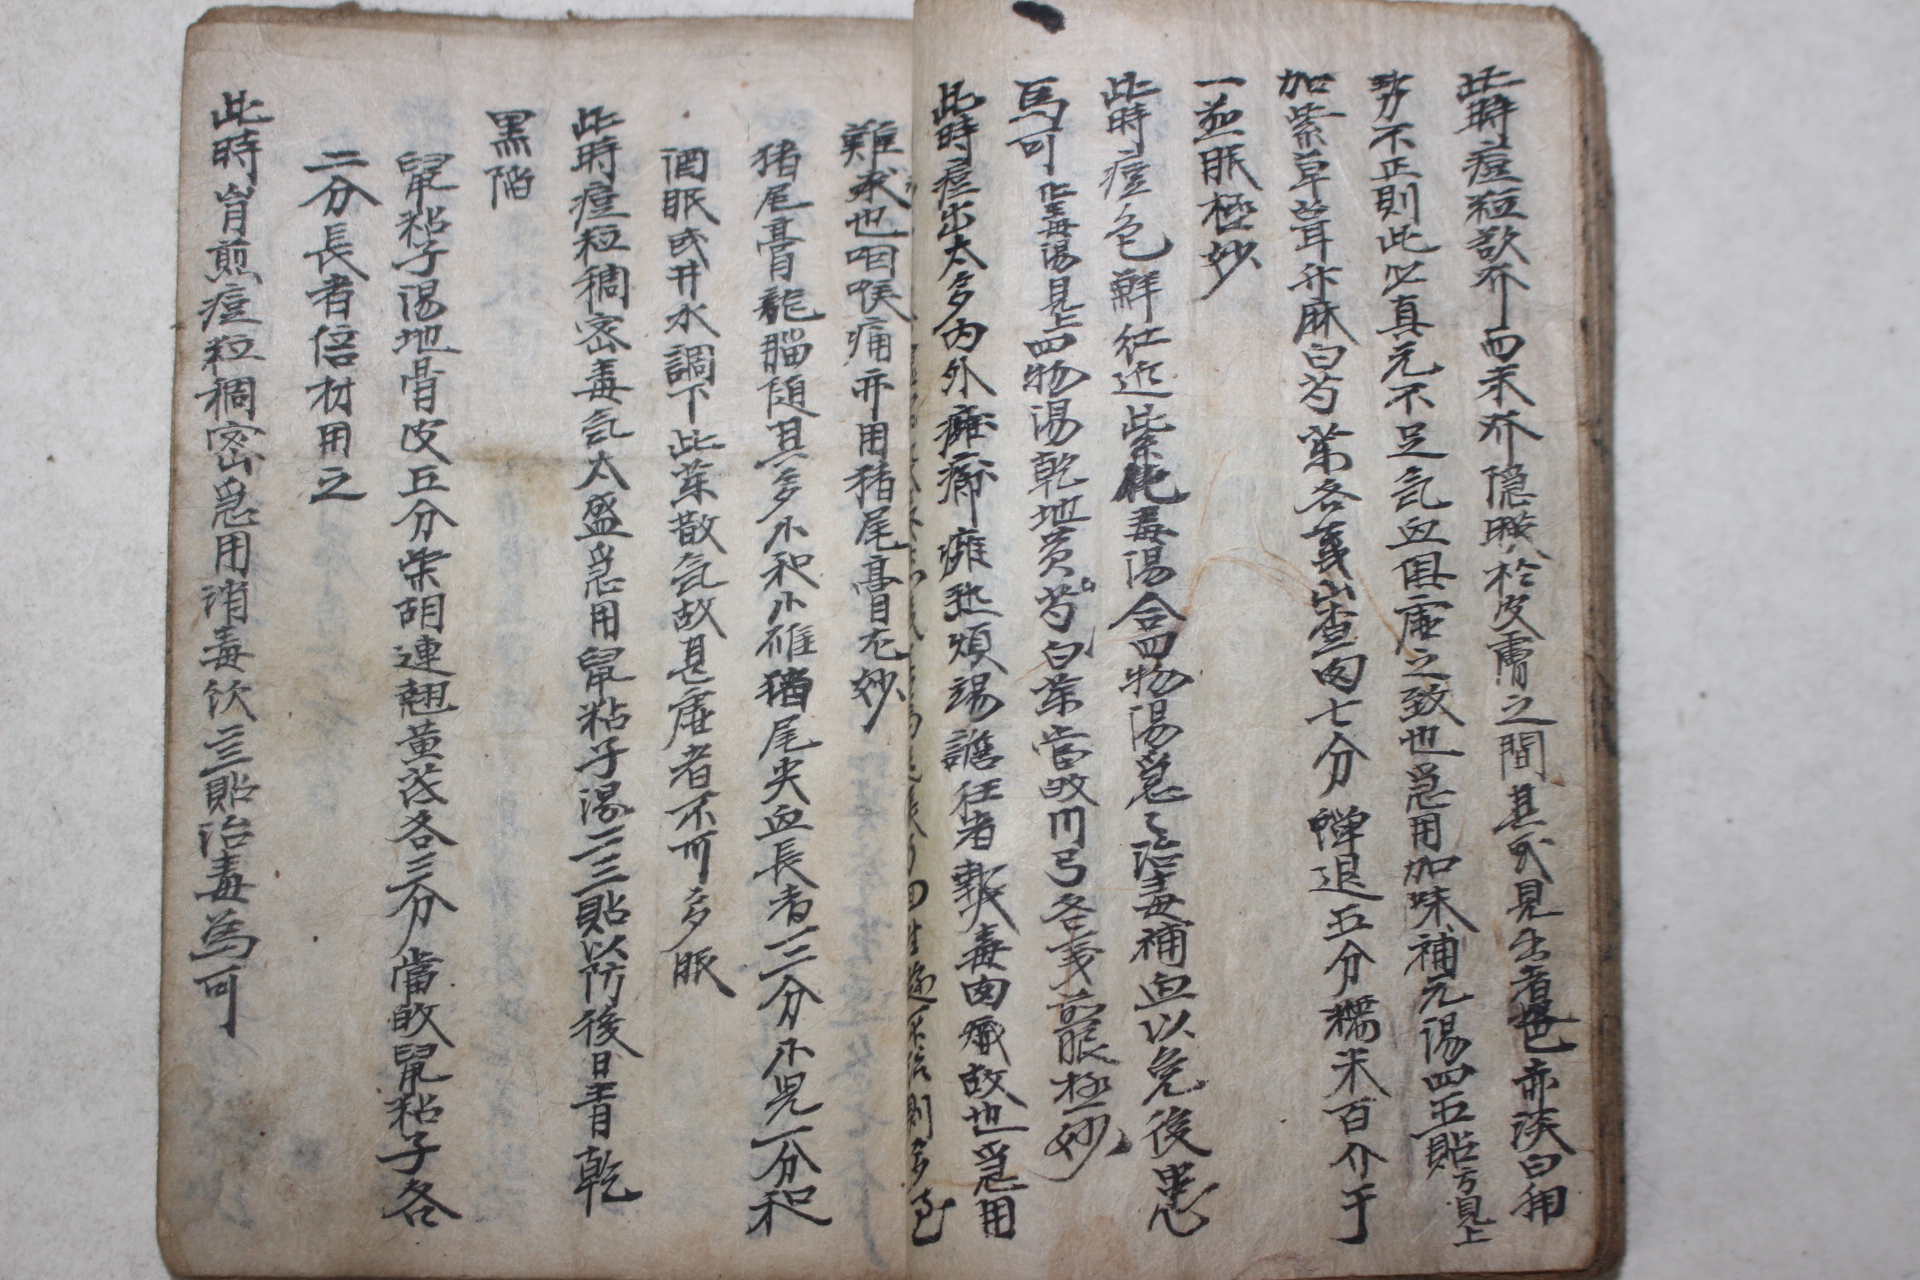 此時痘粒欲齐而未齐隐聯於皮膚之間其或見出者色亦淡白狮
㔟不正則此必真元不足気血俱虛之致也急用加味補元湯四五貼方見上
加紫草茸升麻白芍薬各戔山查肉七分蟬退五分糯米百介于
一並服極妙
此時痘色鮮红近紫化毒湯合四物湯急〻治毒補血以免後患
馬可化毒湯見上四物湯乾地黄白芍薬當攺川弓各戔前服極妙
此時痘出太多内外癰㿈癰迯煩湯譫狂者熱毒肉癥故也急用
難求也咽喉痛亦用猪尾膏尤妙
猪尾膏龍腦随其多小和小雄猪尾尖血長者二三分小児一分和
酒服或井水調下此薬散気故甚虛者不可多服
此時痘粒稠密毒気太盛急用鼠粘子湯二三貼以防後日青乾
黒陷
鼠粘子湯地骨皮五分柴胡連翹黄茋各三分當攺鼠粘子各
二分長者倍材用之
此時肯煎痘粒稠密急用消毒飲三貼治毒為可